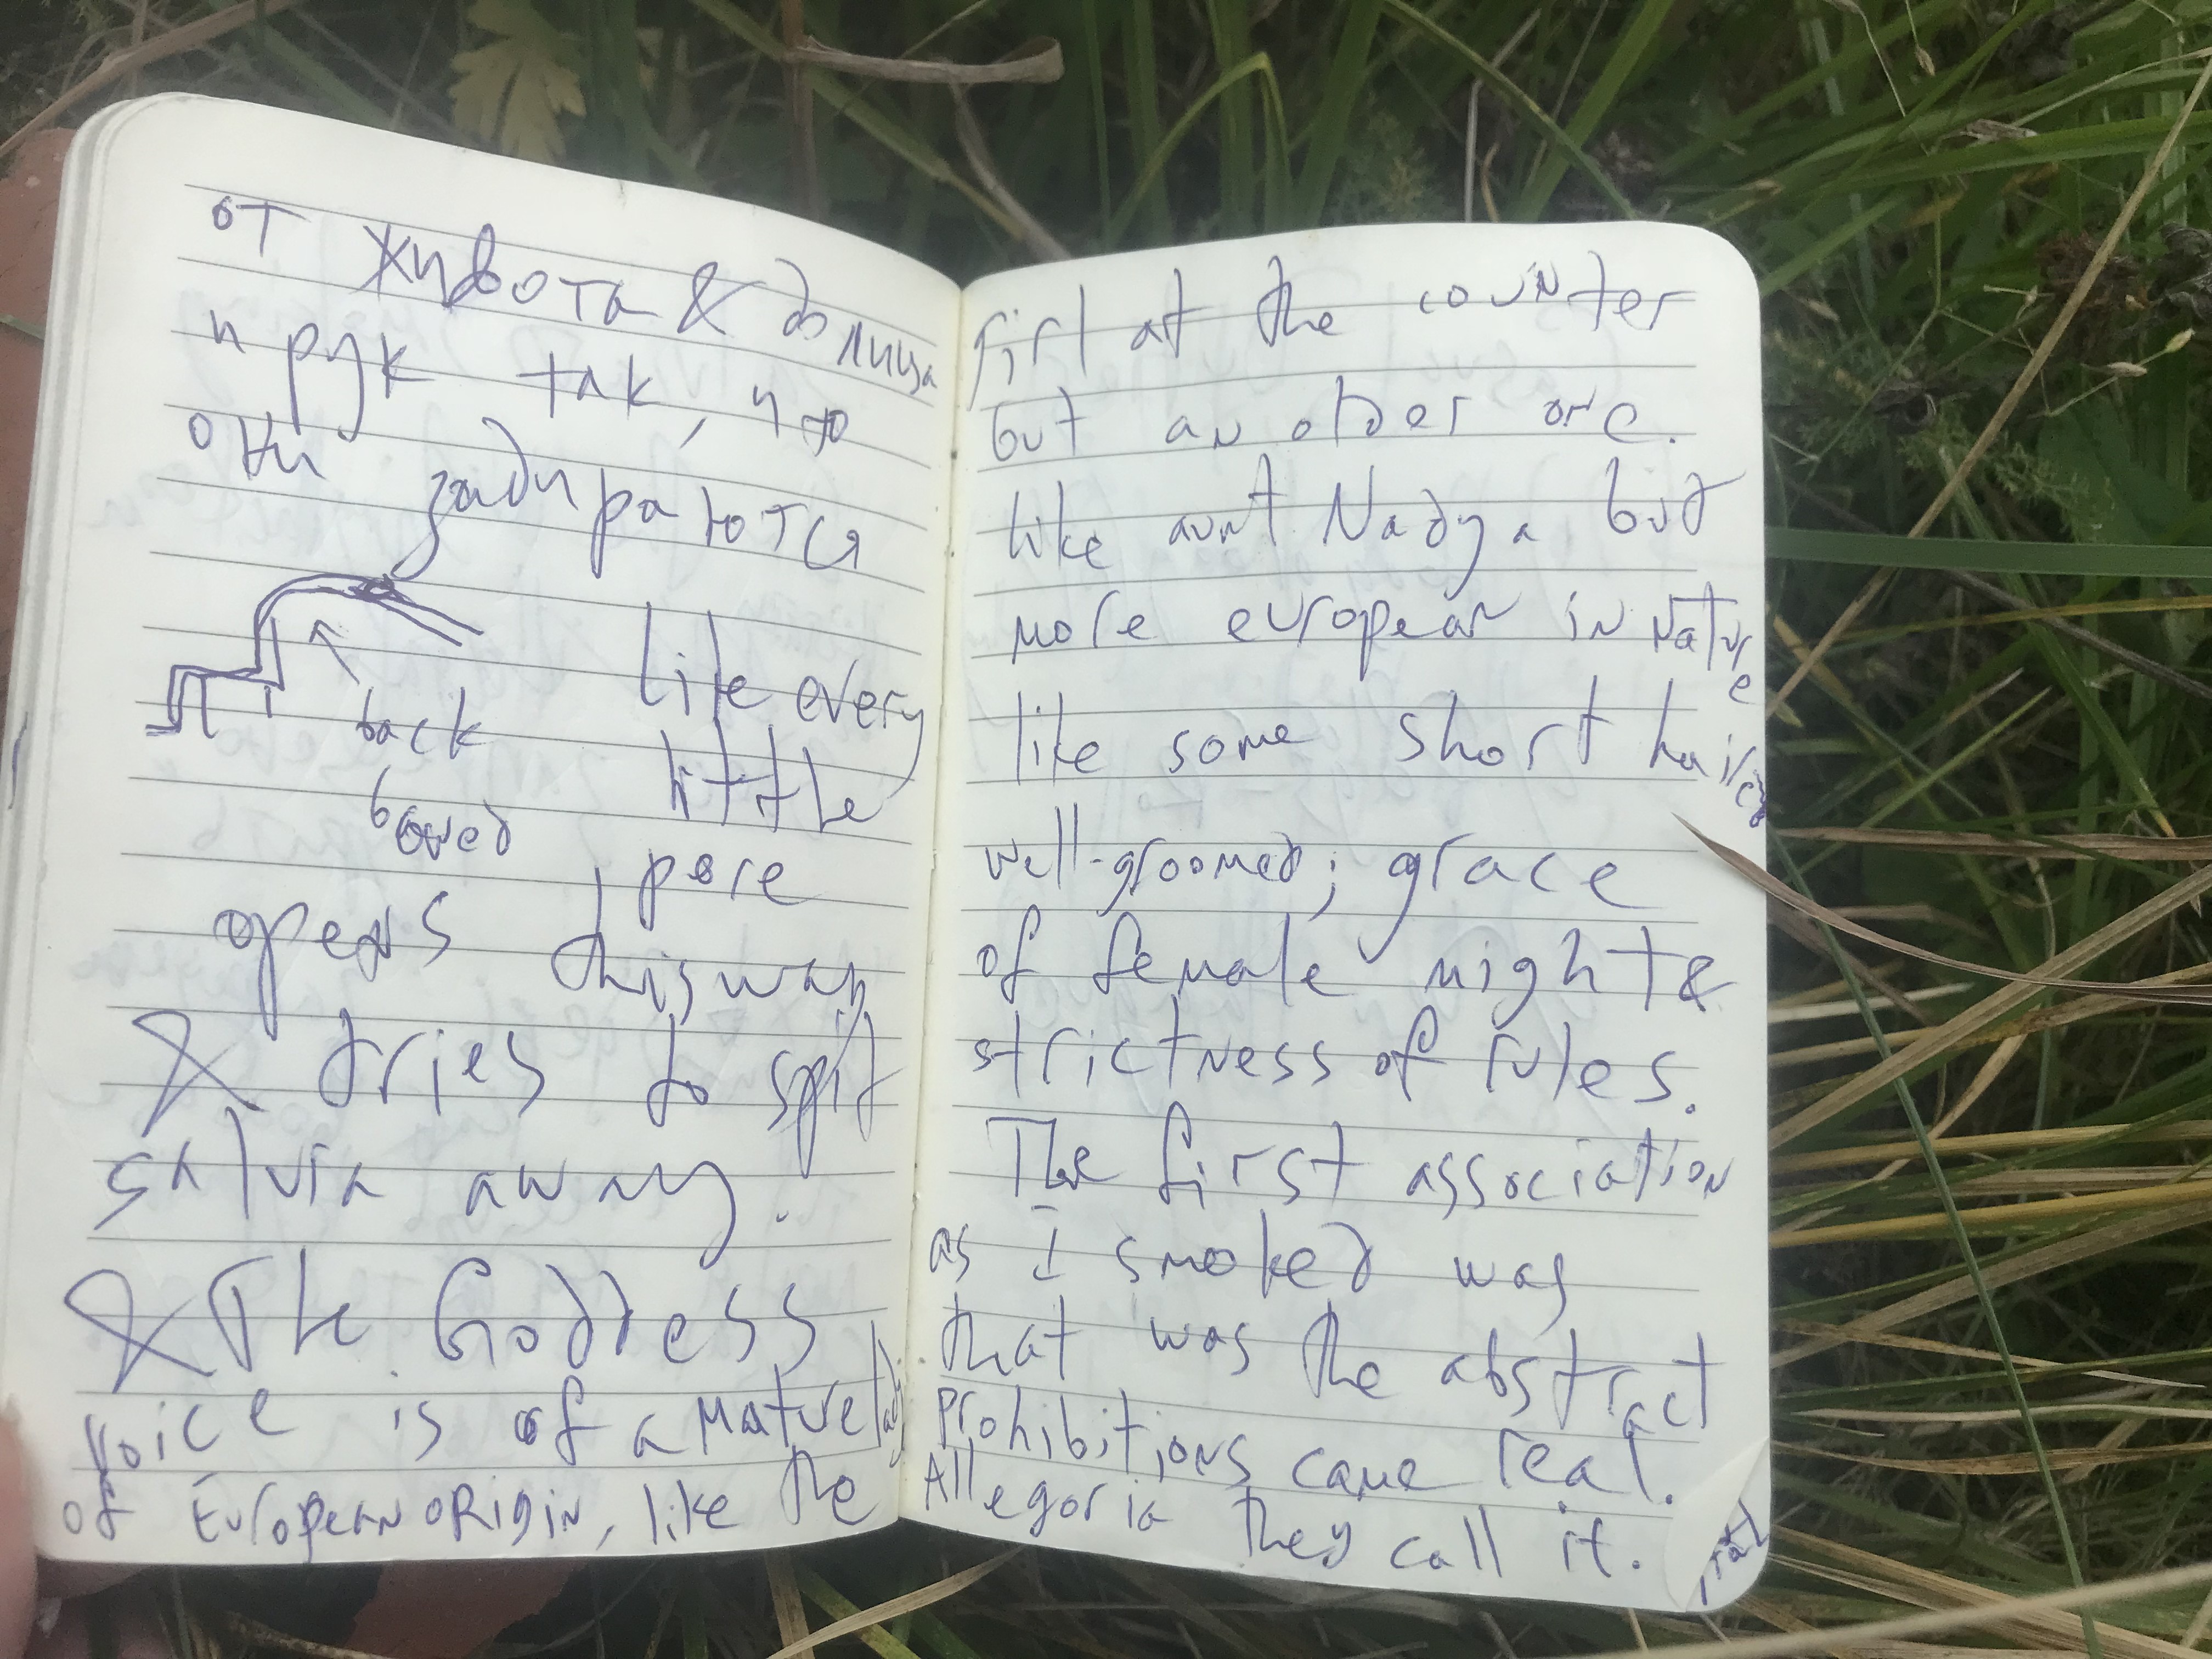 от живота & до лица
и рук так, что
они задираются
Like every
back little
bowed
opens pore
dries this way
saluia away.
The Goddess
Voice is of a mature lady
of European oRigin, like the
girl at the counter
but an older one.
like aunt Nadya but
more european in Nature
like some short hair cy
well-groomed; grace
of female might &
strictness of rules.
The first association
as I smoked was
that was the abstract
Prohibitions came real.
Allegoria they call it.